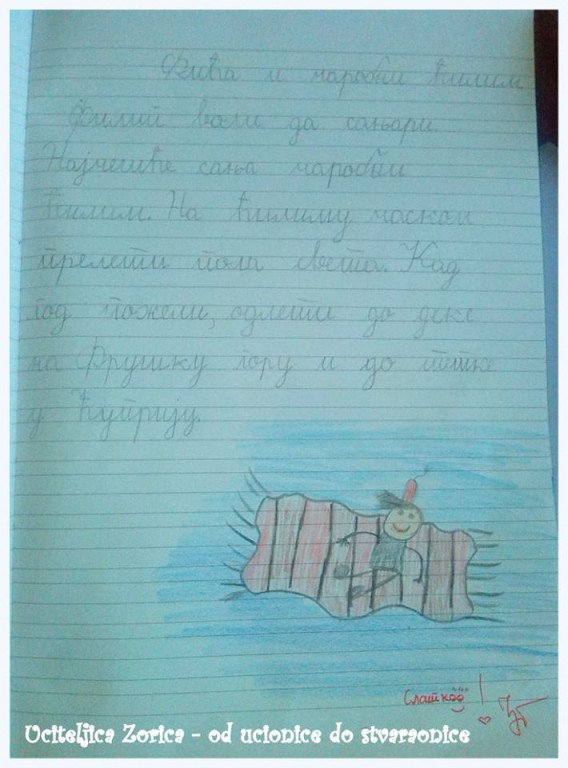 Фића и чаробни ћилим
Филип воли да сањари.
Најчешће сања чаробни
ћилим. На ћилиму часком
прелети пола света. Кад
год пожели, одлети до деке
на Фрушку гору и до тетке
у Ћуприју.
Слаткооо!
Uciteljica Zorica - od ucionice do stvaraonice